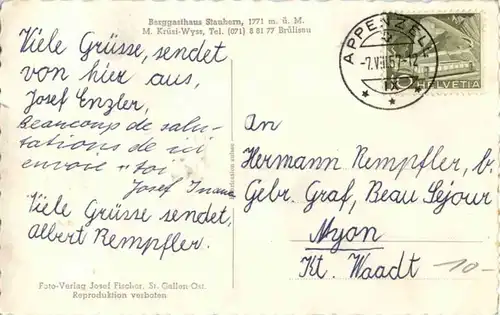 Berggasthaus Staubern, 1771 m. ü. M.
M. Krüsi-Wyss, Tel. (071) 8 81 77 Brülisau
Viele Grüsse, sendet
von hier aus,
Josef Enzler,
Beaucoup de salu-
tations de ici
envoie toi
Josef
Viele Grüsse sendet,
Albert Rempfler.
Foto-Verlag Josef Fischer, St. Gallen-Ost.
Reproduktion verboten
APPENZELL
HELVETIA
An
Hermann Rempfler, b.
Gebr. Graf, Beau Séjour
Nyon
Kt. Waadt
10.-